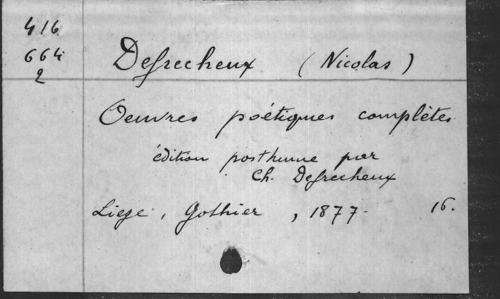 416
664
2
Defrecheux (Nicolas)
Oeuvres poétiques complètes
édition posthume par
Ch. Defrecheux
Liege, Gothier, 1877. 16.